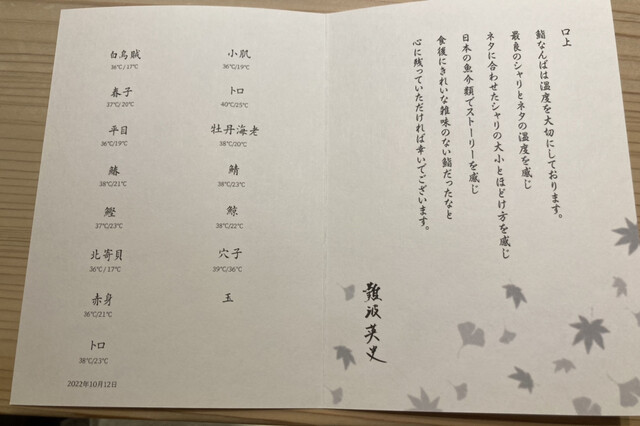 口上
鮨なんばは温度を大切にしております。
最良のシャリとネタの温度を感じ
ネタに合わせたシャリの大小とほどけ方を感じ
日本の魚介類でストーリーを感じ
食後にきれいな雑味のない鮨だったなと
心に残っていただければ幸いでございます。
難波英史
小肌
36℃/19℃
トロ
40℃/25℃
牡丹海老
38℃/20℃
鯖
38℃/23℃
鯨
38℃/22℃
穴子
39℃/36℃
玉
白烏賊
36℃/17℃
春子
37℃/20℃
平目
36℃/19℃
鰆
38℃/21℃
鰹
37℃/23℃
北寄貝
36℃/17℃
赤身
36℃/21℃
トロ
38℃/23℃
2022年10月12日